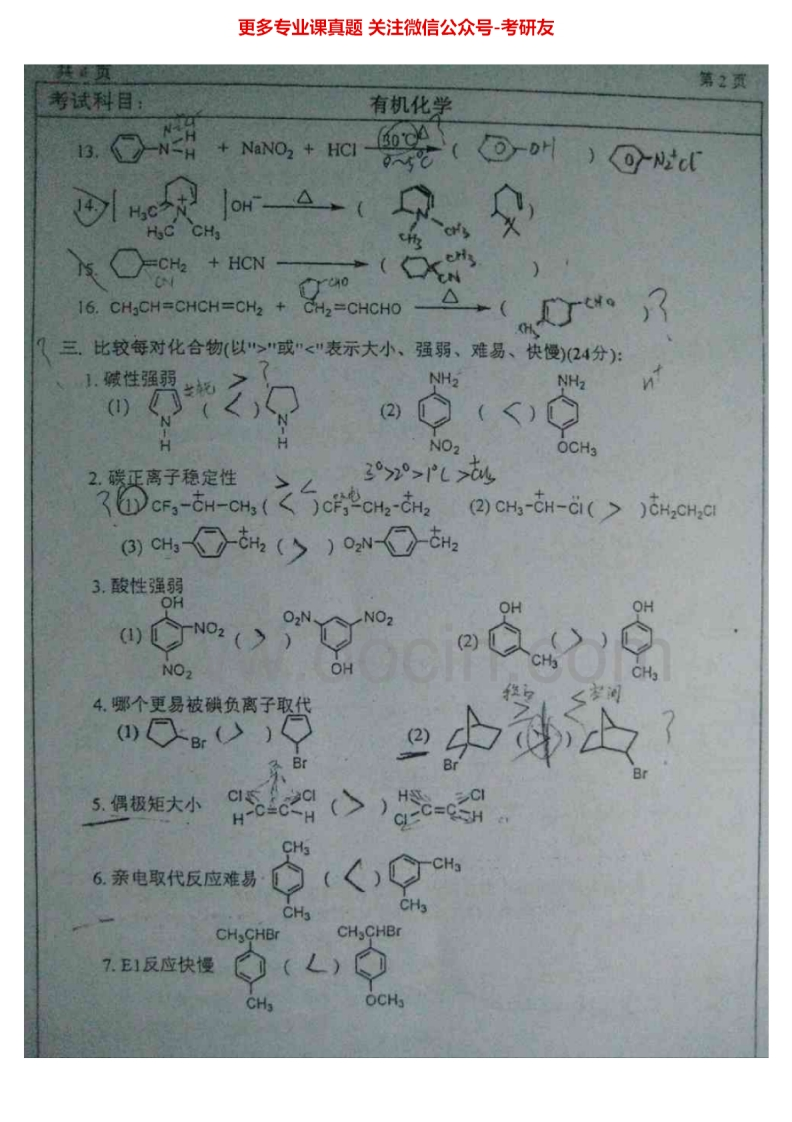 更多专业课真题 关注微信公众号-考研友
共4页 第2页
考试科目: 有机化学
13. N H H + NaNO₂ + HCl 30℃ △ 0~5℃ ( OH ) N₂⁺Cl⁻
14. [ H₃C N⁺ H₃C CH₃ ] OH⁻ △ ( N CH₃ CH₃ )
15. =CH₂ + HCN ( CH₃ CN )
CN CHO
16. CH₃CH=CHCH=CH₂ + CH₂=CHCHO △ ( CH₃ CHO ) ?
? 三. 比较每对化合物(以">"或"<"表示大小、强弱、难易、快慢)(24分):
1. 碱性强弱 > ?
(1) N H ( < ) N H (2) NH₂ NO₂ ( < ) NH₂ OCH₃
2. 碳正离子稳定性 > < 3°>2°>1°C>⁺CH₃
? (1) CF₃-⁺CH-CH₃ ( < ) CF₃-CH₂-⁺CH₂ (2) CH₃-⁺CH-C̈l ( > ) ⁺CH₂CH₂Cl
(3) CH₃ ⁺CH₂ ( > ) O₂N ⁺CH₂
3. 酸性强弱
(1) OH NO₂ NO₂ ( > ) O₂N NO₂ OH (2) OH CH₃ ( > ) OH CH₃
4. 哪个更易被碘负离子取代 > < 空间
(1) Br ( > ) Br (2) Br ( ) Br ?
5. 偶极矩大小 Cl Cl H C=C H ( > ) H Cl Cl C=C H
6. 亲电取代反应难易 CH₃ CH₃ ( < ) CH₃ CH₃
7. E1反应快慢 CH₃CHBr CH₃ ( < ) CH₃CHBr OCH₃
www.docin.com